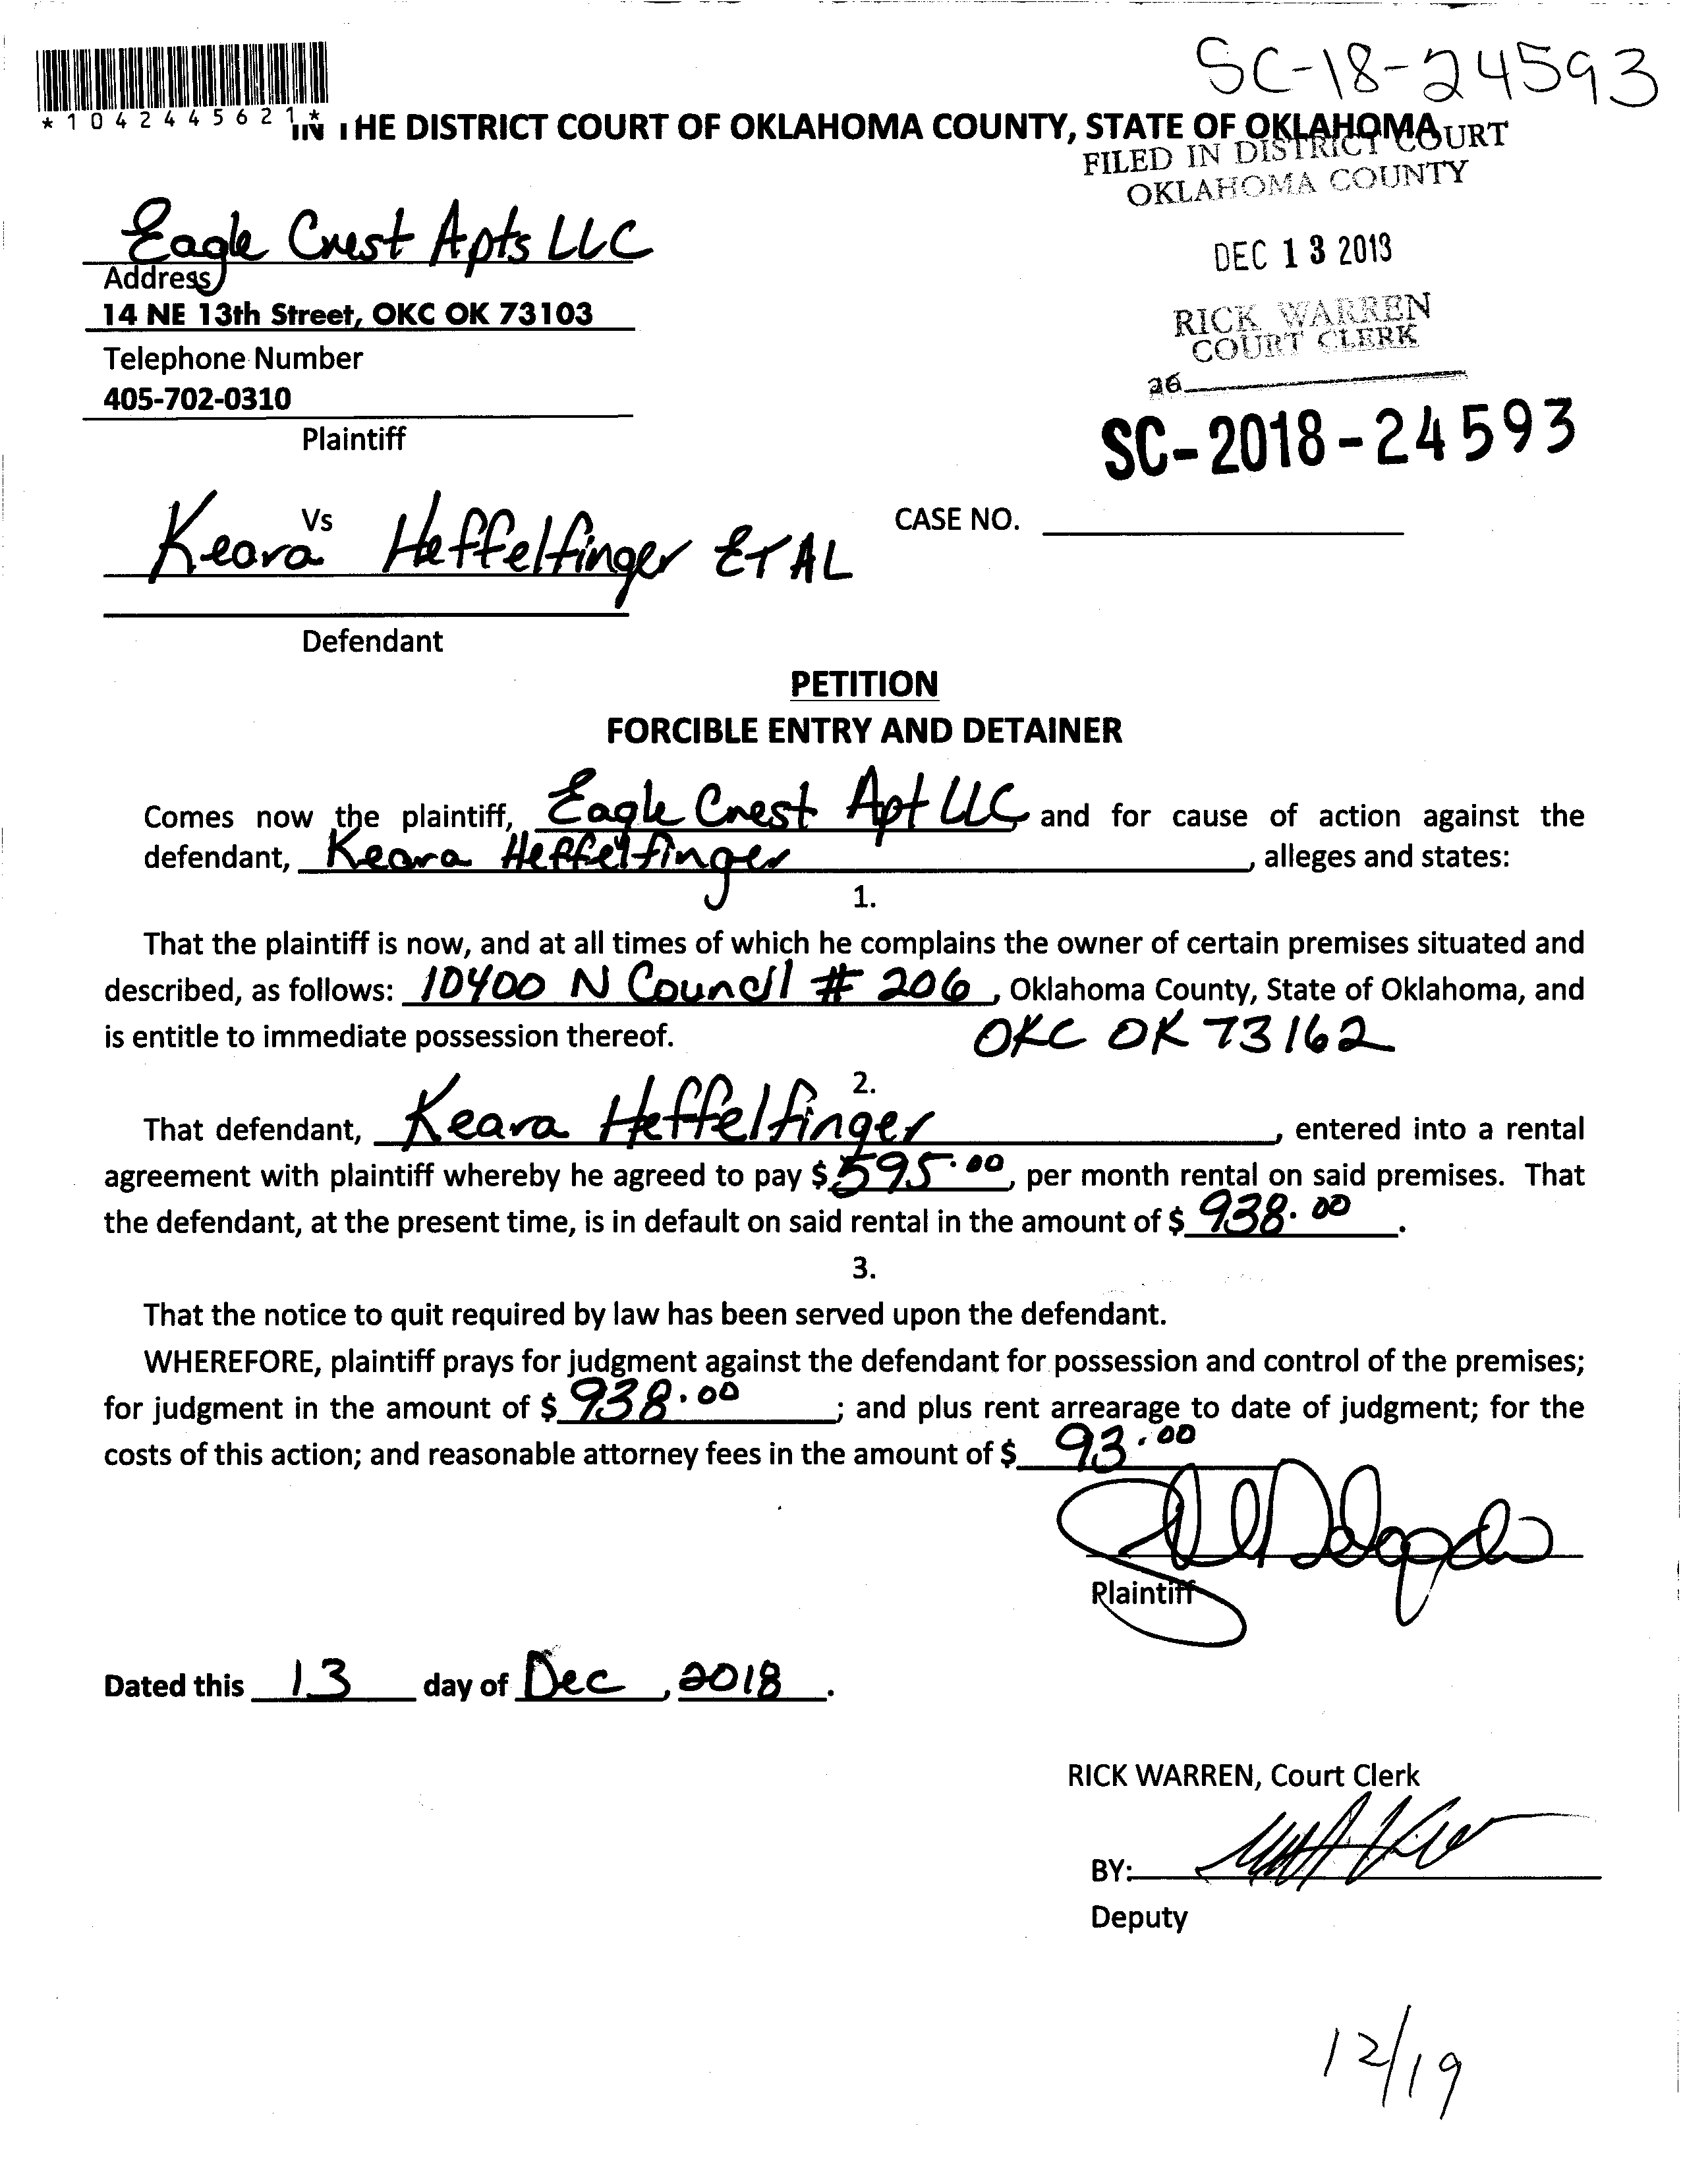 SC-18-24593
*1042445621*
IN THE DISTRICT COURT OF OKLAHOMA COUNTY, STATE OF OKLAHOMA
FILED IN DISTRICT COURT
OKLAHOMA COUNTY
Eagle Crest Apts LLC
DEC 13 2018
Address
14 NE 13th Street, OKC OK 73103
RICK WARREN
COURT CLERK
Telephone Number
36
405-702-0310
Plaintiff
SC-2018-24593
Vs
CASE NO.
Keara Heffelfinger ET AL
Defendant
PETITION
FORCIBLE ENTRY AND DETAINER
Comes now the plaintiff, Eagle Crest Apt LLC and for cause of action against the
defendant, Keara Heffelfinger, alleges and states:
1.
That the plaintiff is now, and at all times of which he complains the owner of certain premises situated and
described, as follows: 10400 N Council # 206, Oklahoma County, State of Oklahoma, and
is entitle to immediate possession thereof. OKC OK 73162
2.
That defendant, Keara Heffelfinger, entered into a rental
agreement with plaintiff whereby he agreed to pay $ 595.00, per month rental on said premises. That
the defendant, at the present time, is in default on said rental in the amount of $ 938.00.
3.
That the notice to quit required by law has been served upon the defendant.
WHEREFORE, plaintiff prays for judgment against the defendant for possession and control of the premises;
for judgment in the amount of $ 938.00; and plus rent arrearage to date of judgment; for the
costs of this action; and reasonable attorney fees in the amount of $ 93.00
Plaintiff
Dated this 13 day of Dec, 2018.
RICK WARREN, Court Clerk
BY:
Deputy
12/19